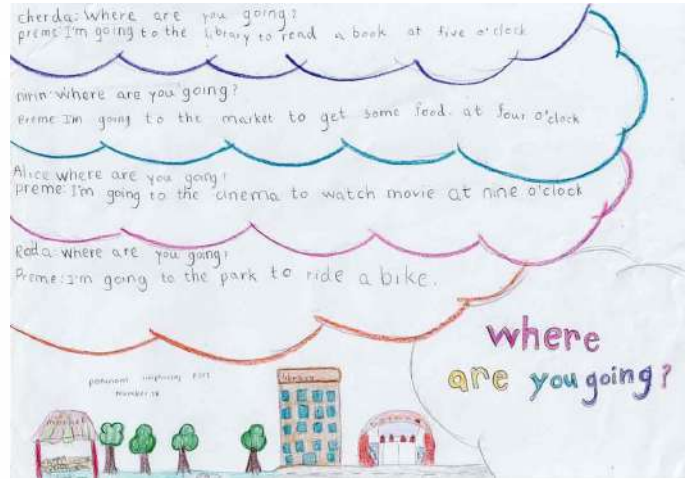 cherda: Where are you going?
preme: I'm going to the library to read a book at five o'clock
nirin: where are you going?
Preme I'm going to the market to get some food. at four o'clock
Alice where are you going?
preme: I'm going to the cinema to watch movie at nine o'clock
Roda: where are you going?
Preme: I'm going to the park to ride a bike.
where
are you going?
number 18
library
market
cinema